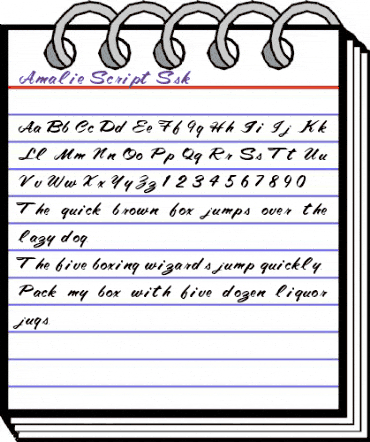 Amalie Script Ssk
Aa Bb Cc Dd Ee Ff Gg Hh Ii Jj Kk
Ll Mm Nn Oo Pp Qq Rr Ss Tt Uu
Vv Ww Xx Yy Zz 1 2 3 4 5 6 7 8 9 0
The quick brown fox jumps over the
lazy dog
The five boxing wizards jump quickly
Pack my box with five dozen liquor
jugs